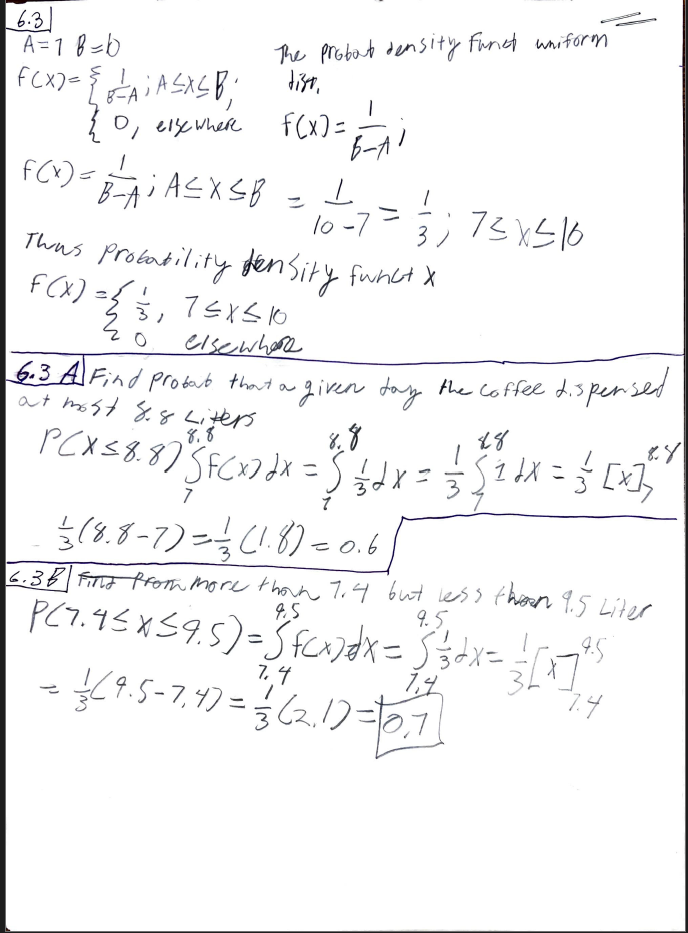 6.3
A=7 B=10
The probab density funct uniform dist,
f(x)= { 1/B-A ; A≤x≤B;
{ 0, elsewhere
f(x)= 1/B-A ;
f(x)= 1/B-A ; A≤x≤B = 1/10-7 = 1/3 ; 7≤x≤10
Thus probability density funct x
f(x) = { 1/3, 7≤x≤10
{ 0 elsewhere
6.3 A Find probab that a given day the coffee dispensed
at most 8.8 Liters
P(x≤8.8) ∫_7^8.8 f(x)dx = ∫_7^8.8 1/3 dx = 1/3 ∫_7^8.8 1 dx = 1/3 [x]_7^8.8
1/3(8.8-7)=1/3(1.8)=0.6
6.3B Find Prom more than 7.4 but less than 9.5 Liter
P(7.4≤x≤9.5)=∫_7.4^9.5 f(x)dx = ∫_7.4^9.5 1/3 dx= 1/3[x]_7.4^9.5
= 1/3(9.5-7.4)= 1/3(2.1)=0.7